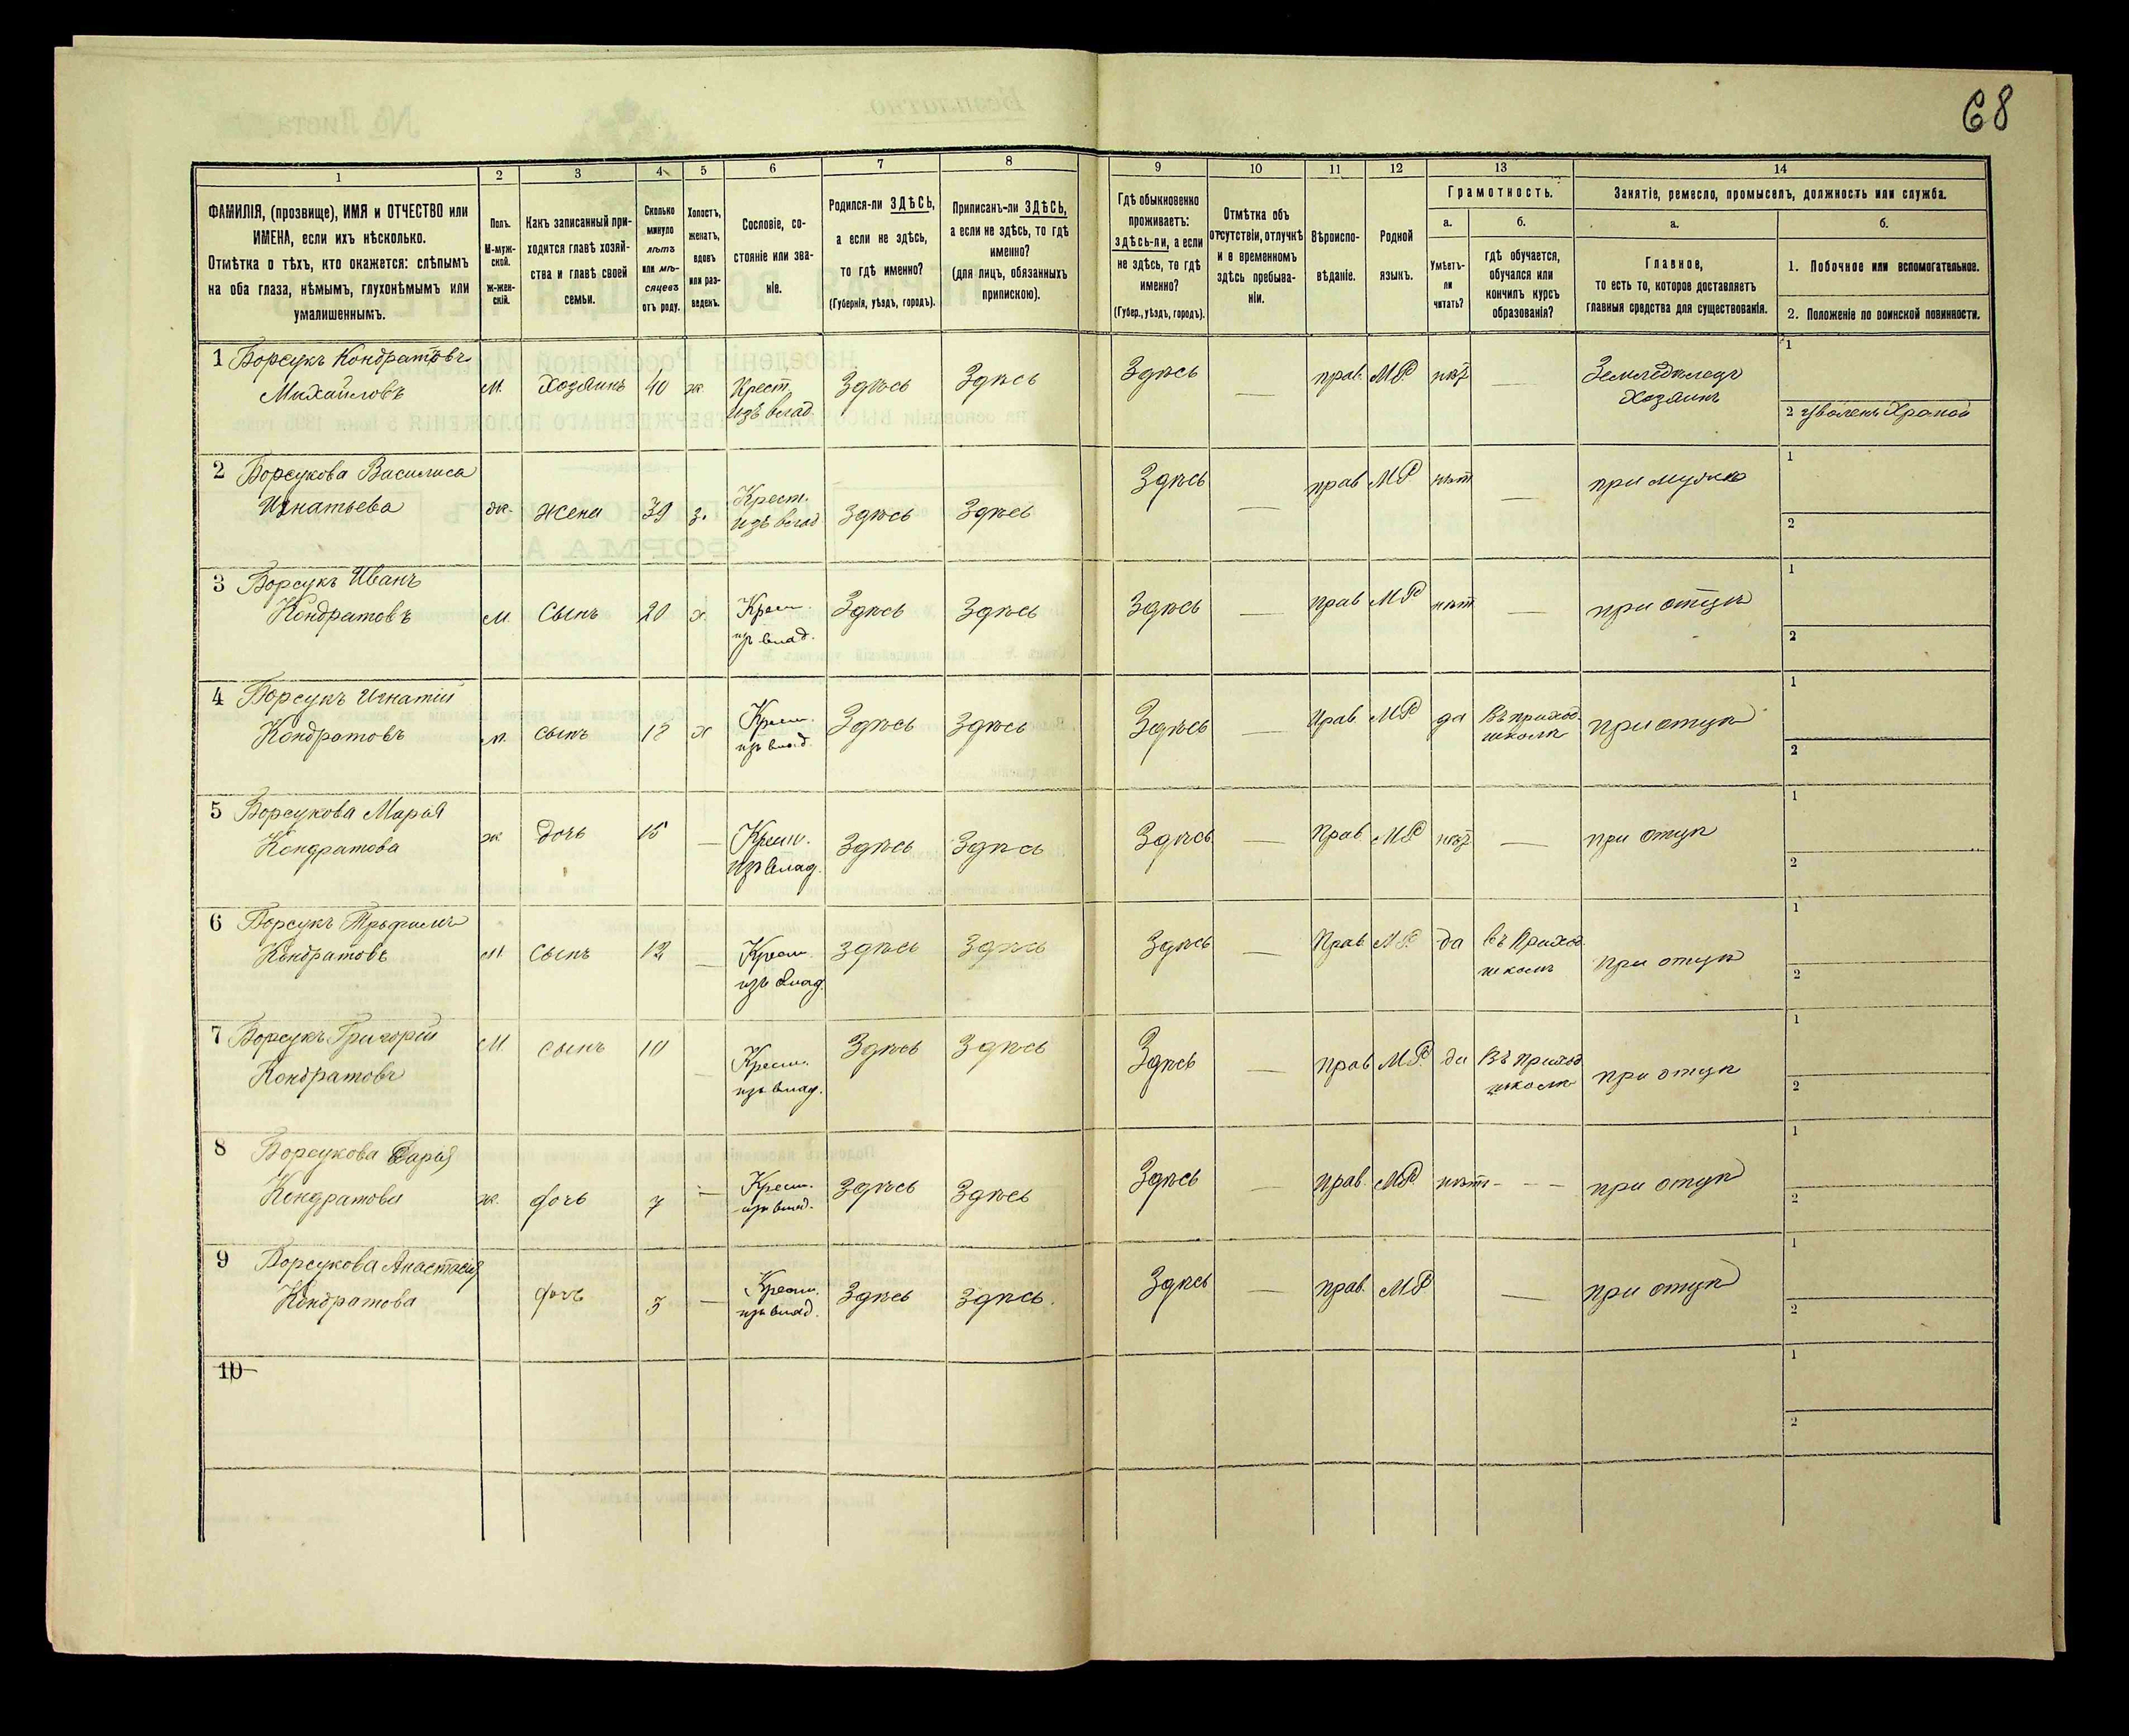 68
1 2 3 4 5 6 7 8 9 10 11 12 13 14
ФАМИЛІЯ, (прозвище), ИМЯ и ОТЧЕСТВО или ИМЕНА, если ихъ нѣсколько.
Отмѣтка о тѣхъ, кто окажется: слѣпымъ на оба глаза, нѣмымъ, глухонѣмымъ или умалишеннымъ.
Полъ. М-мужской. Ж-женскій.
Какъ записанный приходится главѣ хозяйства и главѣ своей семьи.
Сколько минуло лѣтъ или мѣсяцевъ отъ роду.
Холостъ, женатъ, вдовъ или разведенъ.
Сословіе, состояніе или званіе.
Родился-ли ЗДѢСЬ, а если не здѣсь, то гдѣ именно? (Губернія, уѣздъ, городъ).
Приписанъ-ли ЗДѢСЬ, а если не здѣсь, то гдѣ именно? (для лицъ, обязанныхъ припискою).
Гдѣ обыкновенно проживаетъ: здѣсь-ли, а если не здѣсь, то гдѣ именно? (Губер., уѣздъ, городъ).
Отмѣтка объ отсутствіи, отлучкѣ и о временномъ здѣсь пребываніи.
Вѣроисповѣданіе.
Родной языкъ.
Грамотность.
а. Умѣетъ-ли читать?
б. гдѣ обучается, обучался или кончилъ курсъ образованія?
Занятіе, ремесло, промыселъ, должность или служба.
а. Главное, то есть то, которое доставляетъ главныя средства для существованія.
б.
1. Побочное или вспомогательное.
2. Положеніе по воинской повинности.
1 Борсукъ Кондратовъ Михайловъ М. Хозяинъ 40 ж. Крест. изъ влад Здѣсь Здѣсь Здѣсь — прав. М.Р. нѣт — Земледѣлецъ Хозяинъ 1
2
2 Борсукова Василиса Игнатьева ж. жена 39 з. Крест. изъ влад Здѣсь Здѣсь Здѣсь — прав М Р нѣт — при мужѣ 1
2
3 Борсукъ Иванъ Кондратовъ М. Сынъ 20 х. Крест. изъ влад. Здѣсь Здѣсь Здѣсь — прав М Р нѣт — при отцѣ 1
2
4 Борсукъ Игнатій Кондратовъ м. сынъ х Крест. изъ влад. Здѣсь Здѣсь Здѣсь — Прав М Р да Въ приход. школѣ при отцѣ 1
2
5 Борсукова Марья Кондратова ж. дочь 15 — Крест. изъ влад. Здѣсь Здѣсь Здѣсь — Прав. М Р нѣт — при отцѣ 1
2
6 Борсукъ Трофимъ Кондратовъ М. Сынъ 12 — Крест. изъ влад. здѣсь Здѣсь Здѣсь — Прав М Р. да въ Приход. школѣ при отцѣ 1
2
7 Борсукъ Григорій Кондратовъ М. сынъ 10 — Крест. изъ влад. Здѣсь Здѣсь Здѣсь — Прав М Р. да Въ приход школѣ при отцѣ 1
2
8 Борсукова Дарія Кондратова ж. дочь 7 — Крест. изъ влад. Здѣсь Здѣсь Здѣсь — прав. М.Р. нѣт - - - при отцѣ 1
2
9 Борсукова Анастасія Кондратова дочь 3 — Крест. изъ влад. Здѣсь Здѣсь. Здѣсь — прав. М Р — при отцѣ 1
2
10 1
2